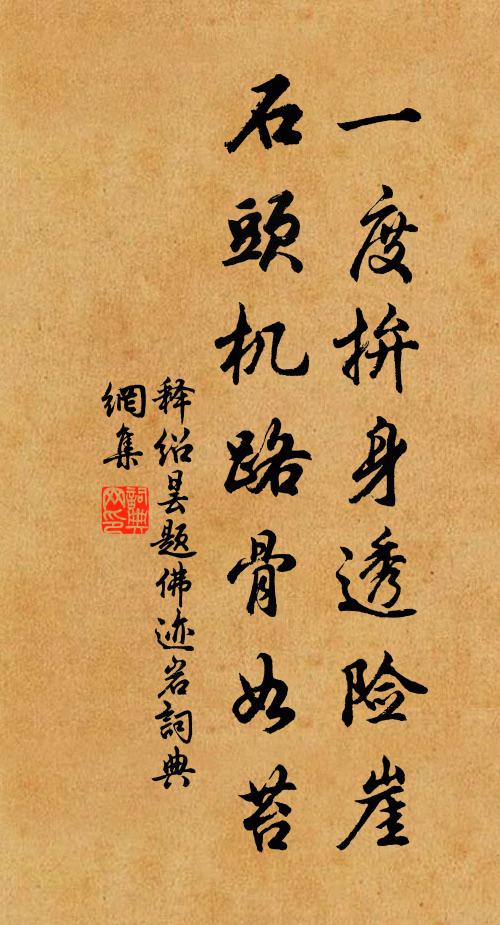 一度拚身透险崖
石頭机路骨如苔
释绍昙题佛迹岩詞典
網集
詞典
网印